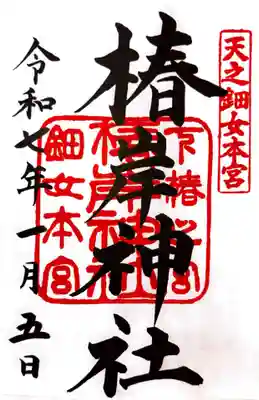 天之鈿女本宮
椿岸神社
鈿女本宮
令和七年一月五日